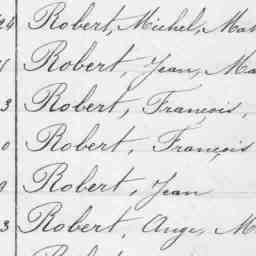 24 Robert, Michel, Mat
Robert, Jean, Ma
3 Robert, François,
0 Robert, François
9 Robert, Jean
3 Robert, Ange, M